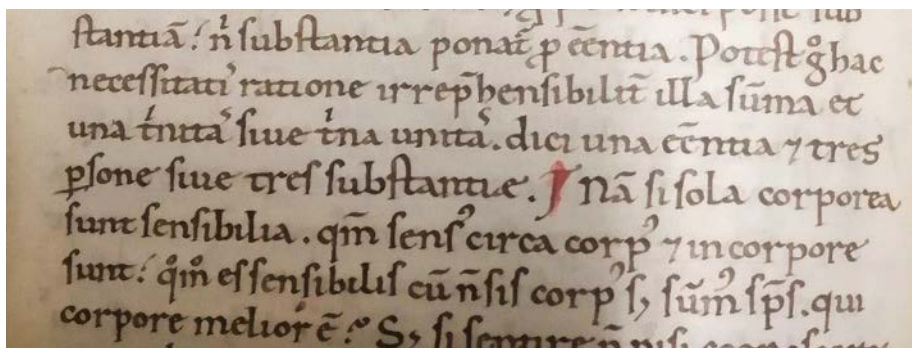 stantiā! nͥ substantia ponat̄ ꝓ eēntia. Potest gͦ hac
necessitatiˀ ratione irrep̄hensibilit̄ illa sūma et
una tͥnitaˢ siue tͥna unitaˢ. dici una eēntia ⁊ tres
ꝑsone siue tres substantie. Nā si sola corporea
sunt sensibilia. qm̄ sensꝰ circa corpꝰ ⁊ in corpore
sunt! qͦm̄ es sensibilis cū n̄ sis corpꝰ sꝫ sūmꝰ sp̄s. qui
corpore melior ē? Sꝫ si sentire n̄ nisi